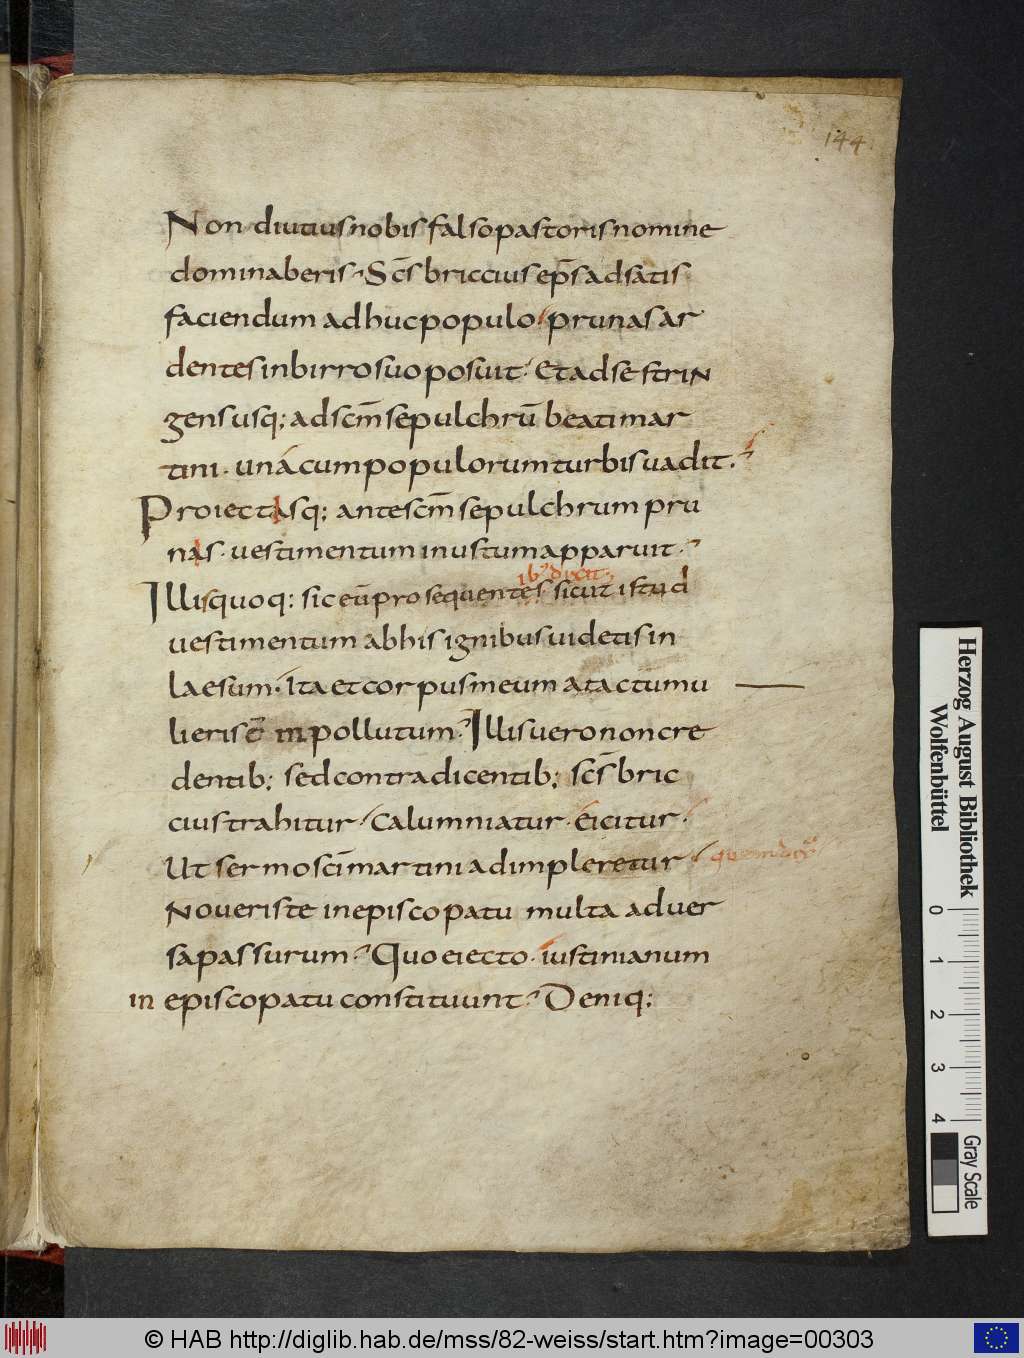 144
Non diutius nobis falso pastoris nomine
dominaberis. Scs briccius eps ad satis
faciendum adhuc populo. prunas ar
dentes in birro suo posuit. Et ad se strin
gens usq; ad scm sepulchrū beati mar
tini. una cum populorum turbis uadit.
Proiectasq; ante scm sepulchrum pru
nas. uestimentum inustum apparuit.
ibi dixit;
Illis quoq; sic eū prosequentes sicut istud
uestimentum ab his ignibus uidetis in
laesum. Ita et corpus meum a tactu mu
lieris ē inpollutum. Illis uero non cre
dentib; sed contradicentib; scs bric
cius trahitur. Calumniatur. Eicitur.
Ut sermo sci martini adimpleretur.
Noueris te in episcopatu multa aduer
sa passurum. Quo eiecto. iustinianum
in episcopatu constituunt. Deniq;
Herzog August Bibliothek
Wolfenbüttel
0 1 2 3 4
Gray Scale
© HAB http://diglib.hab.de/mss/82-weiss/start.htm?image=00303